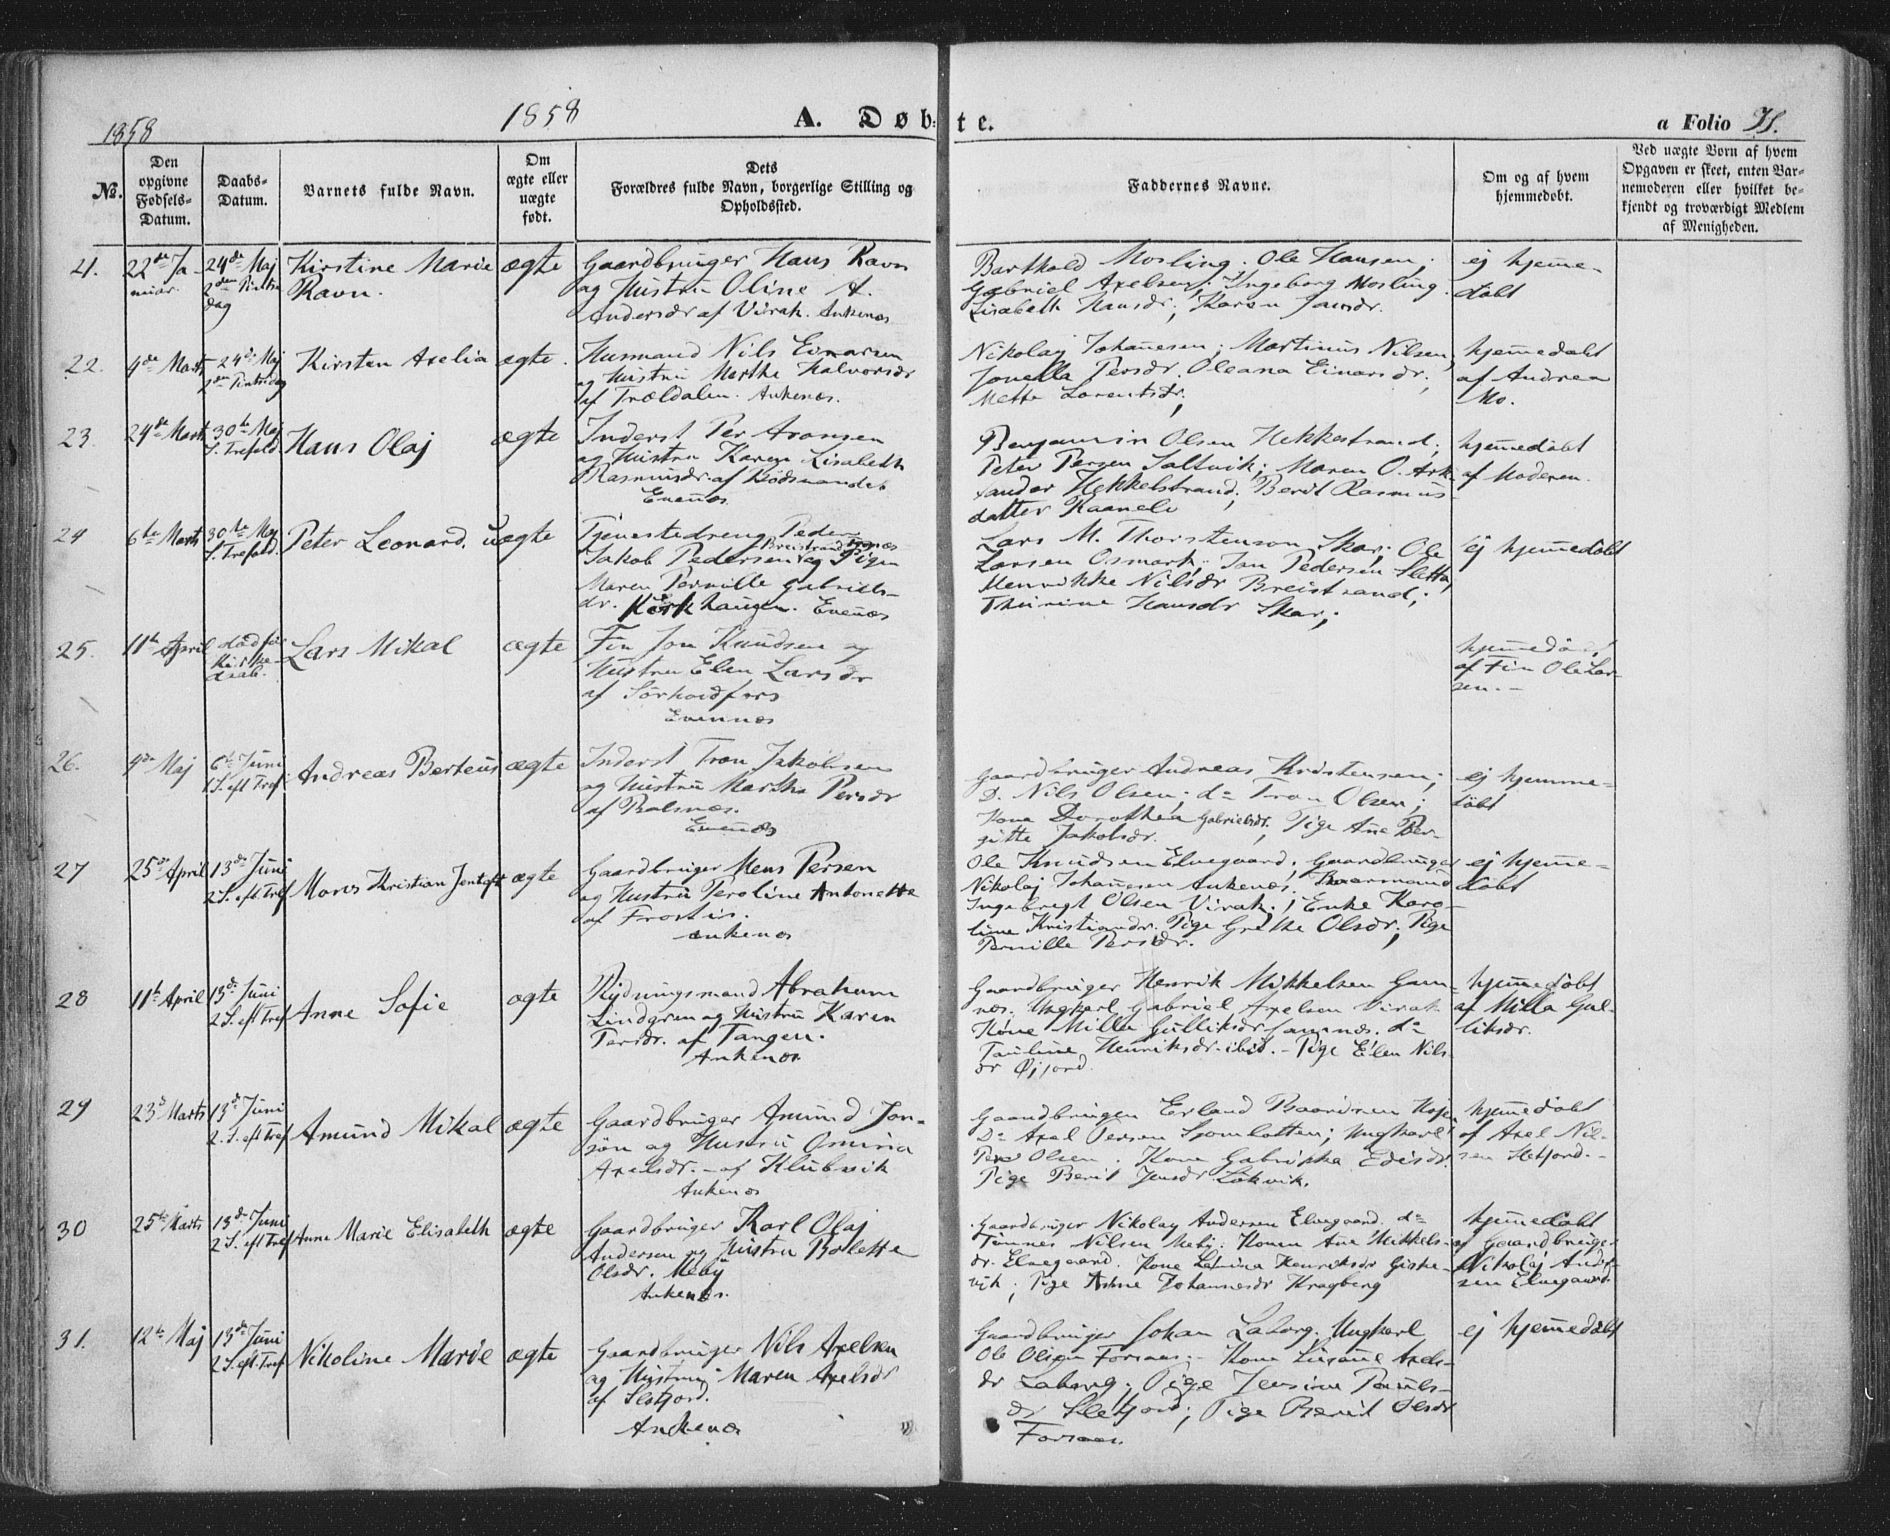 1858
1858
A. Døb-
te.
a Folio
No.
Den opgivne Fødsels-Datum.
Daabs-Datum.
Barnets fulde Navn.
Om ægte eller uægte født.
Dets Forældres fulde Navn, borgerlige Stilling og Opholdssted.
Faddernes Navne.
Om og af hvem hjemmedøbt.
Ved uægte Børn af hvem Opgaven er skeet, enten Barnemoderen eller hvilket bekjendt og troværdigt Medlem af Menigheden.
21.
22de Januar.
24de Maj
2den Pintsedag
Kirstine Marie
Ravn.
ægte
Gaardbruger Hans Ravn
og Hustru Oline A.
Andersdr af Virak. Ankenæs
Barthold Mosling. Ole Hansen,
Gabriel Axelsen; Ingeborg Mosling.
Lisabeth Hansdr; Karen Jansdr.
ej hjeme-
døbt
22.
4de Marts
24de Maj
2den Pintsedag
Kirsten Axelia
ægte.
Husmand Nils Einarsen
og Hustru Marthe Halvorsdr
af Trældalen. Ankenæs.
Nikolaj Johanesen; Martinus Nilsen,
Jonella Persdr. Oleana Einarsdr;
Mette Lorentsdr;
hjemmedøbt
af Andrea
Mo.
23.
24de Marts
30te Maj
S. Trefold.
Hans Olaj
ægte
Inderst Per Aronsen
og Hustru Karen Lisabeth
Rasmusdr af Bødsvandet
Evenæs
Benjamin Olsen Hekkestrand;
Peter Persen Saltvik; Maren O. Ask-
sander Hekkelstrand; Berit Rasmus
datter Raanele
hjemedøbt
af Moderen.
24
6te Marts
30te Maj
S. Trefold.
Peter Leonard.
uægte
Tjenestedreng Peder
Jakob Pedersen Breistrand og Pigen
Maren Pernille Gabriels-
dr. Kirkhaugen. Evenæs
Lars M. Thorstensen Skar; Ole
Larsen Osmark; Jan Pedersen Sletta,
Henrikke Nilsdr Breistrand;
Thrine Hansdr Skar;
ej hjemedøbt
25.
11te April
død før
Kirke-
daab.
Lars Mikal
ægte
Fin Jon Knudsen og
Hustru Elen Larsdr
af Sørhordfors
Evennæs
hjemedøbt
af Fin Ole Lar-
sen.-
26.
4de Maj
6te Juni
1 S. eft Tref
Andreas Berteus
ægte
Inderst Tron Jakobsen
og Hustru Martha Persdr
af Balsnæs.
Evenæs
Gaardbruger Andreas Kristensen;
Do. Nils Olsen; do Tron Olsen;
Kone Dorothea Gabrielsdr, Pige Ane Ber-
gitte Jakobsdr.
ej hjemme-
døbt
27
25de April
13de Juni
2 S. eft Tref
Mons Kristian Jentoft
ægte
Gaardbruger Mons Persen
og Hustru Peroline Antonette
af Frostis.
Ankenæs
Ole Knudsen Elvegaard; Gaardbruger
Nikolaj Johannesen Ankenæs. Baarmand
Ingebregt Olsen Virak; Enke Karo-
line Kristiandr. Pige Grethe Olsdr; Pige
Pernille Persdr.
ej hjeme-
døbt
28
11te April
13de Juni
2 S. eft Tref
Anne Sofie
ægte
Rydningsmand Abraham
Lindgren og Hustru Karen
Persdr. af Tangen.
Ankenæs
Gaardbruger Henrik Mikkelsen Gam-
næs. Ungkarl Gabriel Axelsen Virak
Kone Milla Gulliksdr Gamnæs. do
Pauline Henriksdr ibid. - Pige Elen Nils
dr Øijord.
hjemedøbt
af Milla Gul-
liksdr.
29
23de Marts
13de Juni
2. S. eft Tref
Amund Mikal
ægte
Gaardbruger Amund Jon-
søn og Hustru Omina
Axelsdr. - af Klubvik
Ankenæs
Gaardbrugen Erland Baardsen
Do Axel Persen Sjomlotten; Ungkarl
Peter Olsen. Kone Gabrikka Edisdr
Pige Berit Jensdr Lakvik.
hjemedøbt
af Axel Nil-
sen Sletjord.-
30
25de Marts
13de Juni
2 S. eft Tref
Anne Marie Elisabeth
ægte
Gaardbruger Karl Olaj
Andersen og Hustru Bolette
Olsdr. Meby
Ankenæs.
Gaardbruger Nikolay Andersen Elvegaard. do
Tønnes Nilsen Meby. Konen Ane Mikkels-
dr. Elvegaard. Kone Lamina Henriksdr Giske-
vik; Pige Anne Johannesdr Kragberg
hjemedøbt
af Gaardbruger
Nikolaj Ander-
sen Elvegaard.
31.
12te Maj
13de Juni
2 S. eft. Tref
Nikoline Marie
ægte
Gaardbruger Nils Axelsen
og Hustru Maren Axelsdr
af Sletjord.
Ankenæs
Gaardbruger Johan Laberg. Ungkarl
Ole Olsen Forsaas; - Kone Susane Axels-
dr Laberg; Pige Jensine Pauls-
dr Sletjord; Pige Berit Olsdr
Forsaas
ej hjemedøbt